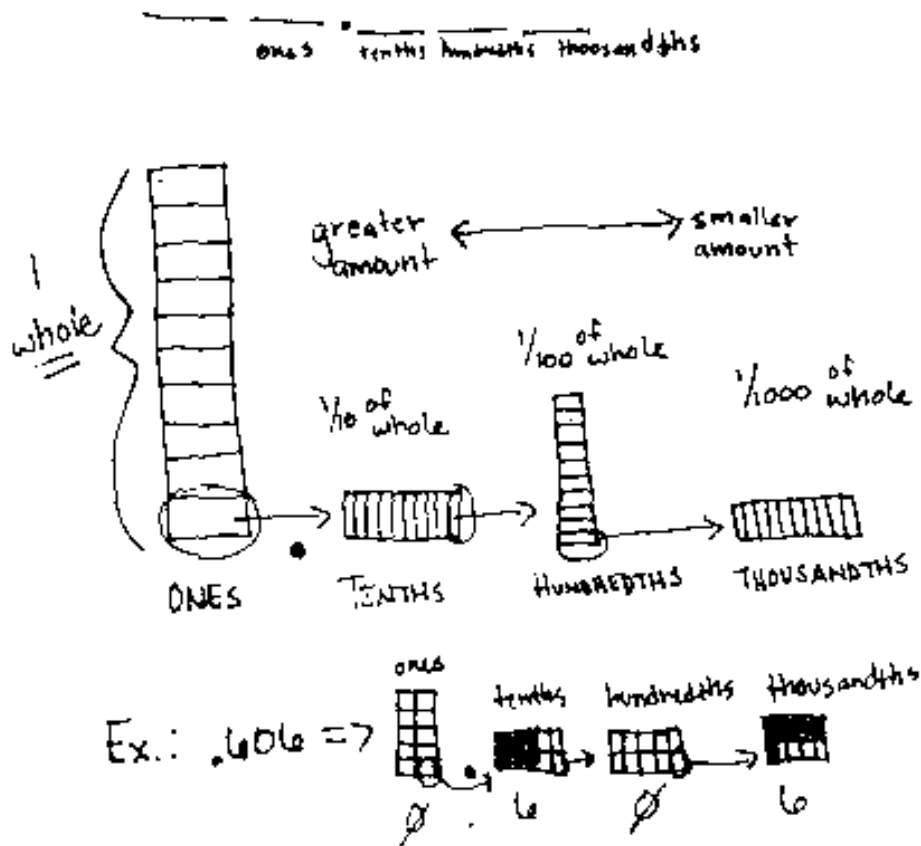 ones . tenths hundredths thousandths
greater amount
smaller amount
1 whole
1/10 of whole
1/100 of whole
1/1000 of whole
ONES . TENTHS HUNDREDTHS THOUSANDTHS
ones tenths hundredths thousandths
Ex.: .606 =>
0 . 6 0 6